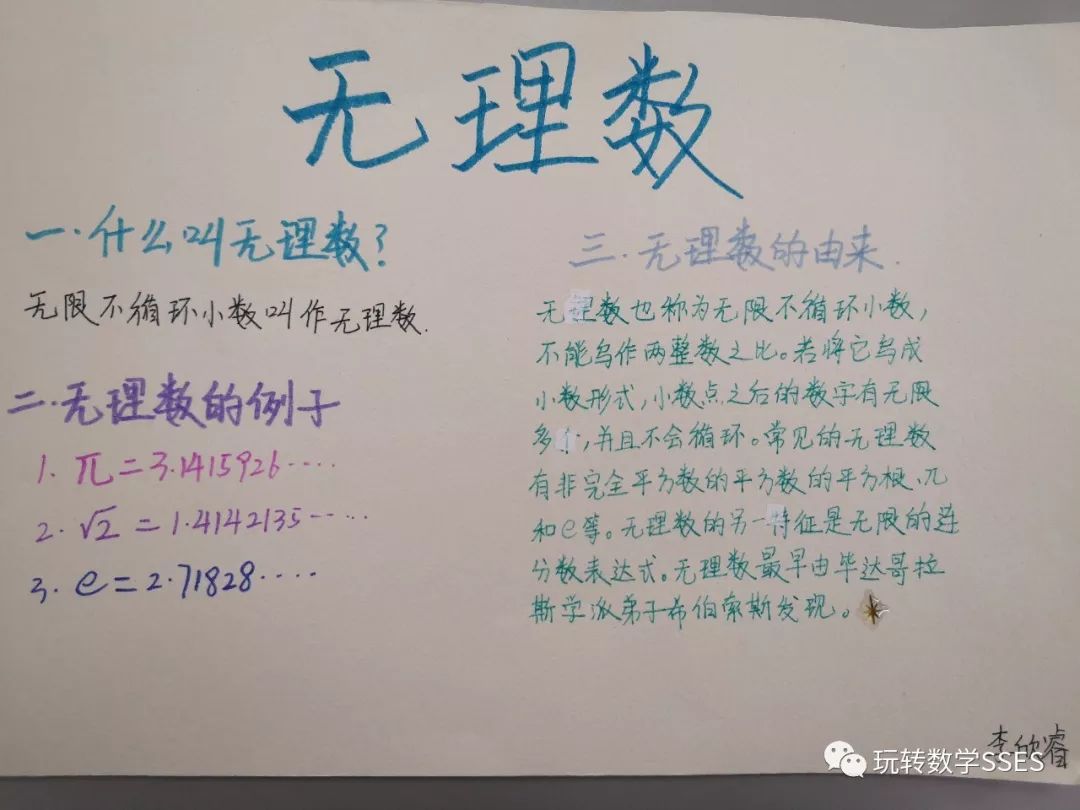 无理数
一.什么叫无理数?
无限不循环小数叫作无理数.
二.无理数的例子
1. π=3.1415926····
2. √2=1.4142135·····
3. e=2.71828····
三.无理数的由来.
无理数也称为无限不循环小数,
不能写作两整数之比。若将它写成
小数形式,小数点之后的数字有无限
多个,并且不会循环。常见的无理数
有非完全平方数的平方数的平方根、π
和e等。无理数的另一特征是无限的连
分数表达式。无理数最早由毕达哥拉
斯学派弟子希伯索斯发现。
李欣睿
玩转数学SSES